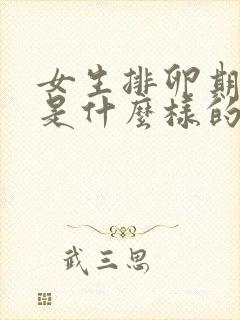 女生排卵期
是什麼樣的
武三思